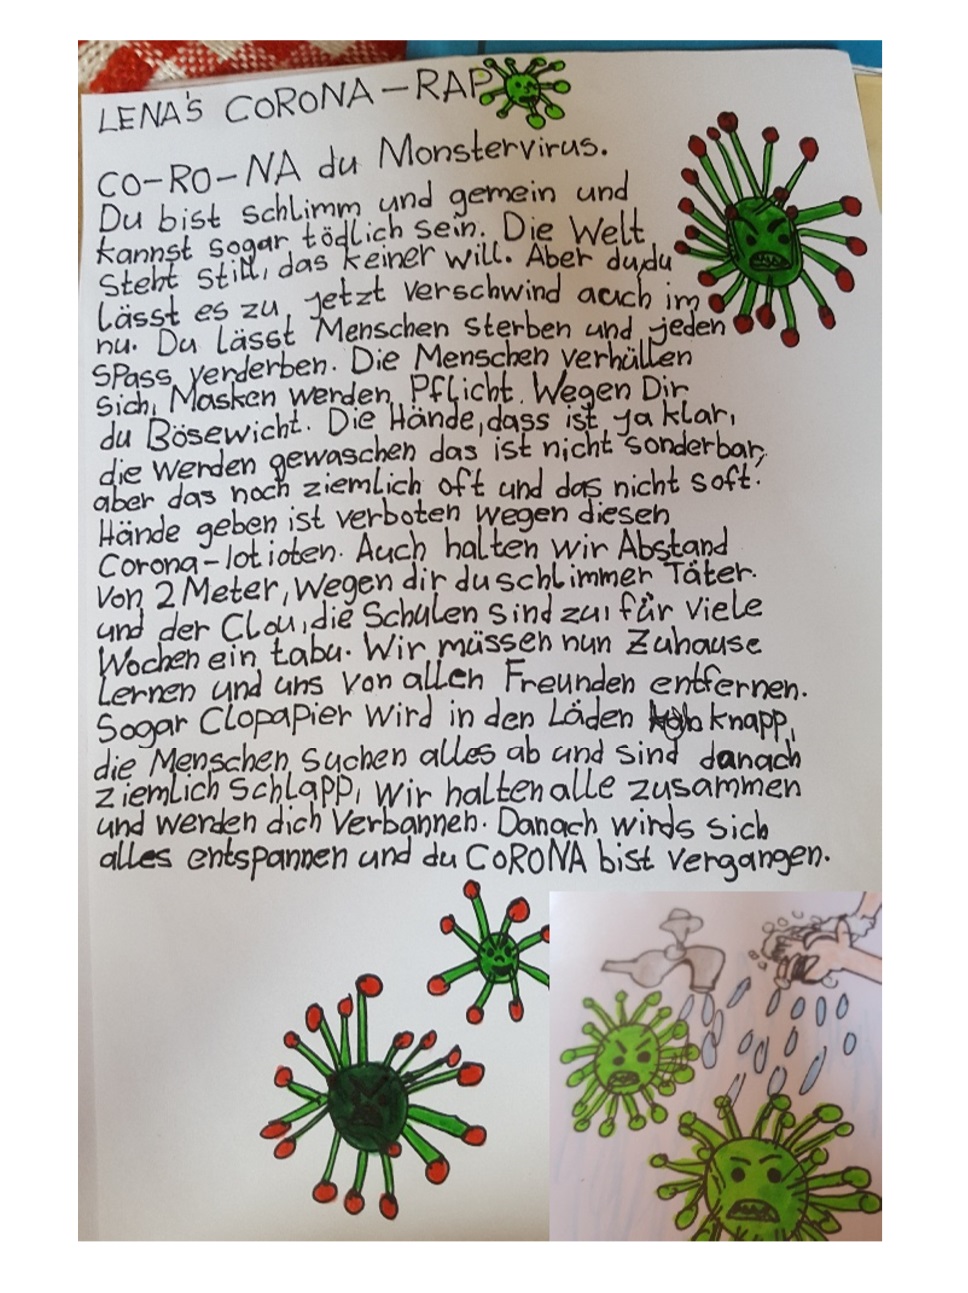 LENA'S CORONA-RAP
CO-RO-NA du Monstervirus.
Du bist schlimm und gemein und
kannst sogar tödlich sein. Die Welt
Steht still, das keiner will. Aber du,du
lässt es zu, jetzt verschwind auch im
nu. Du lässt Menschen sterben und jeden
Spass verderben. Die Menschen verhüllen
sich, Masken werden Pflicht. Wegen Dir
du Bösewicht. Die Hände, dass ist ja klar,
die werden gewaschen das ist nicht sonderbar,
aber das noch ziemlich oft und das nicht soft.
Hände geben ist verboten wegen diesen
Corona-lotioten. Auch halten wir Abstand
Von 2 Meter, Wegen dir du schlimmer Täter.
und der Clou, die Schulen sind zu, für viele
Wochen ein tabu. Wir müssen nun Zuhause
Lernen und uns von allen Freunden entfernen.
Sogar Clopapier wird in den Läden knapp,
die Menschen suchen alles ab und sind danach
ziemlich schlapp, Wir halten alle zusammen
und werden dich Verbannen. Danach wirds sich
alles entspannen und du CORONA bist vergangen.